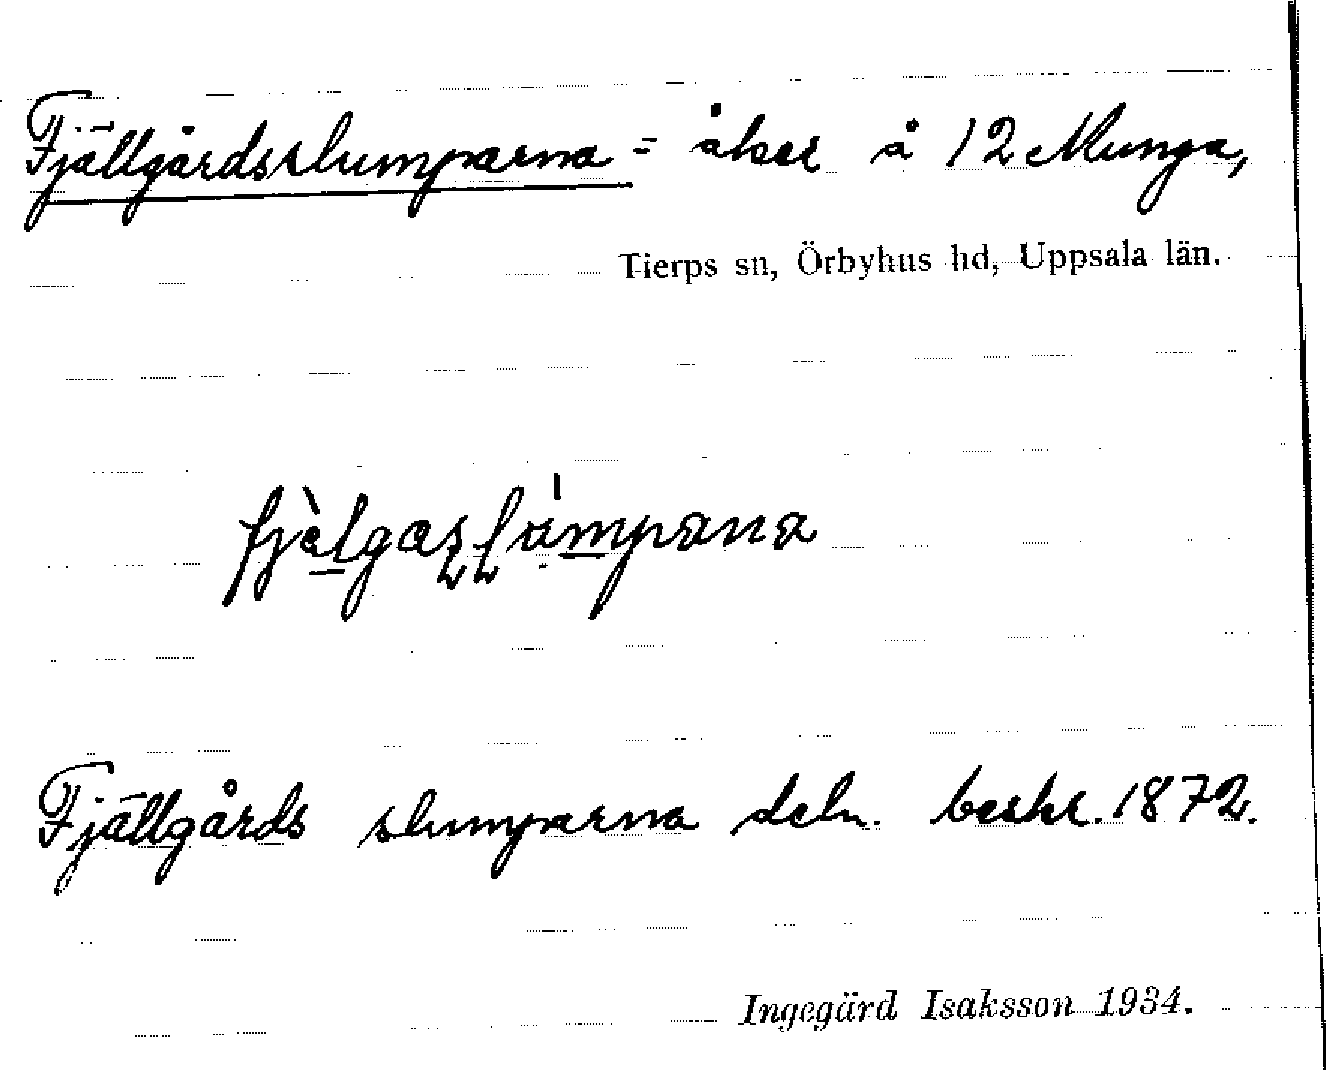 Fjällgårdsslumparna = åker å 12 Munga,
Tierps sn, Örbyhus hd, Uppsala län.
Fjällgårds slumparna deln. beskr. 1872.
Ingegärd Isaksson 1934.